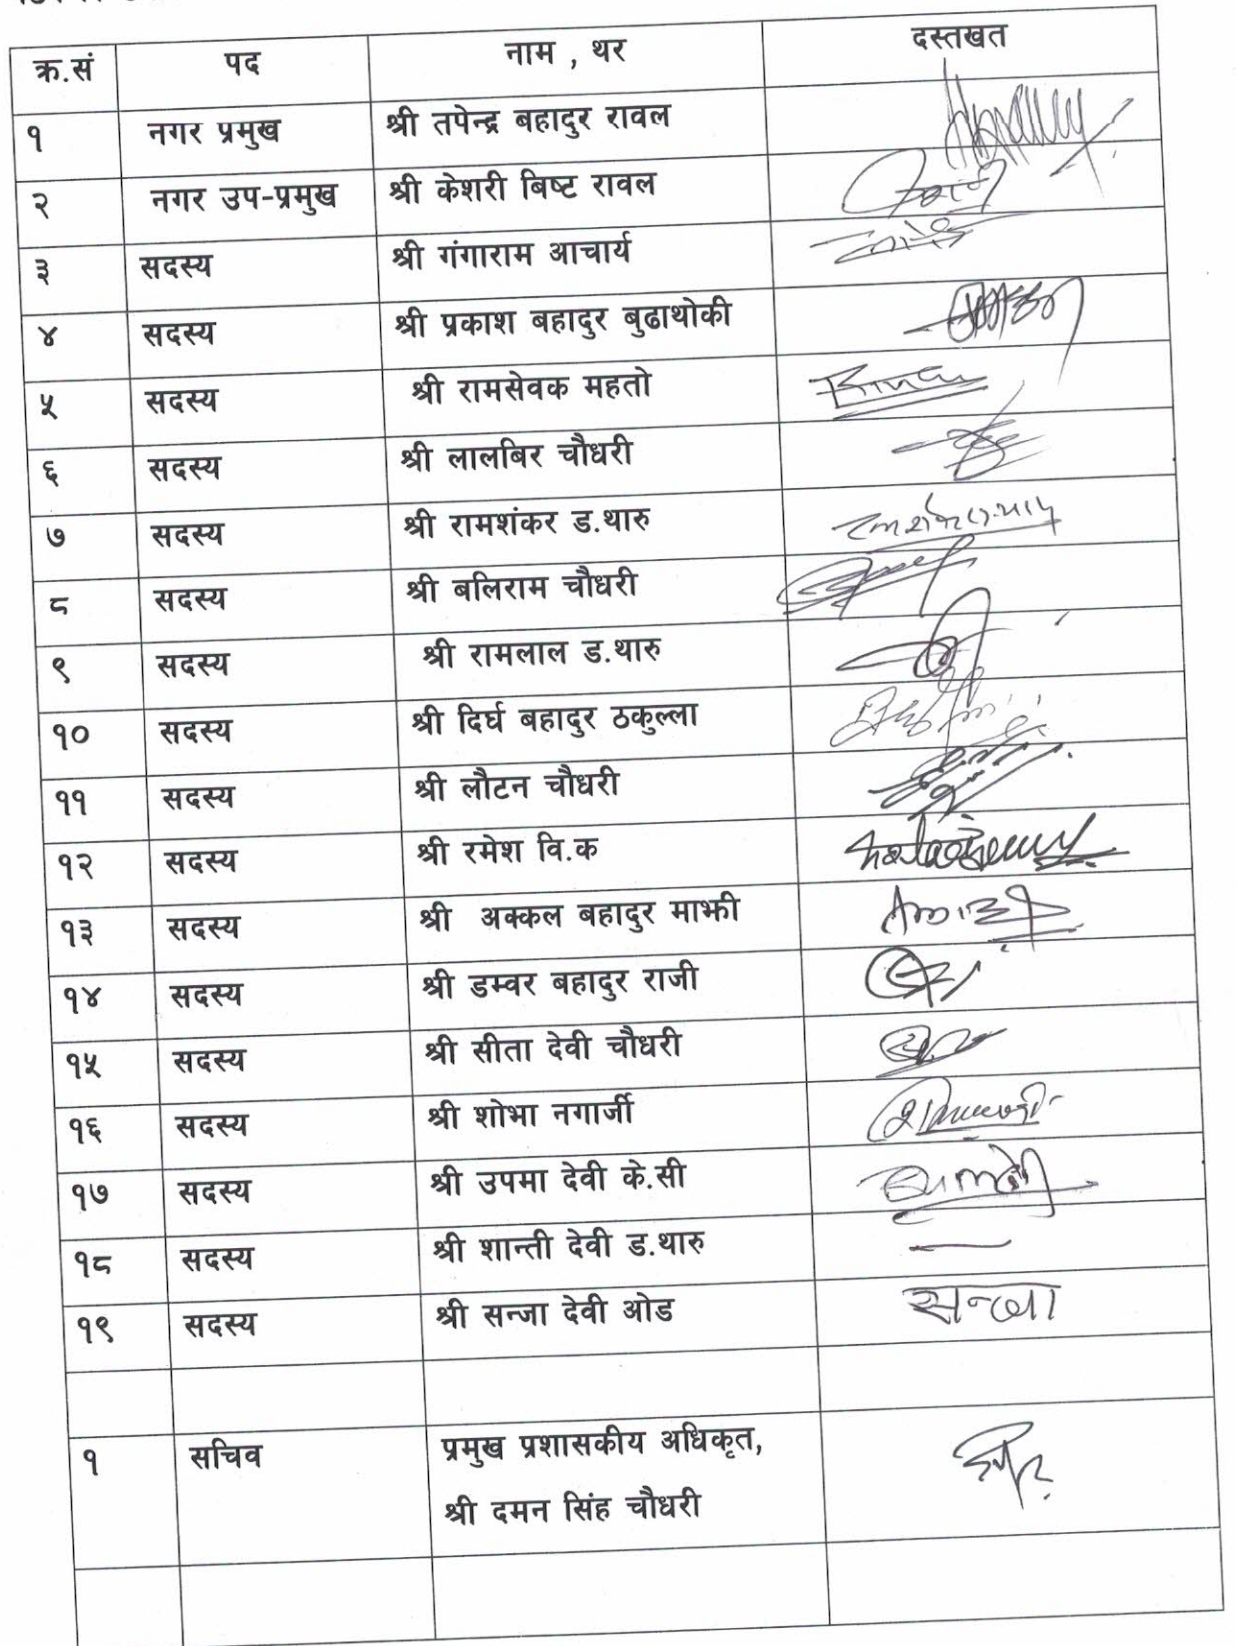 क्र.सं पद नाम , थर दस्तखत
१ नगर प्रमुख श्री तपेन्द्र बहादुर रावल
२ नगर उप-प्रमुख श्री केशरी बिष्ट रावल
३ सदस्य श्री गंगाराम आचार्य
४ सदस्य श्री प्रकाश बहादुर बुढाथोकी
५ सदस्य श्री रामसेवक महतो
६ सदस्य श्री लालबिर चौधरी
७ सदस्य श्री रामशंकर ड.थारु
८ सदस्य श्री बलिराम चौधरी
९ सदस्य श्री रामलाल ड.थारु
१० सदस्य श्री दिर्घ बहादुर ठकुल्ला
११ सदस्य श्री लौटन चौधरी
१२ सदस्य श्री रमेश वि.क
१३ सदस्य श्री अक्कल बहादुर माझी
१४ सदस्य श्री डम्वर बहादुर राजी
१५ सदस्य श्री सीता देवी चौधरी
१६ सदस्य श्री शोभा नगार्जी
१७ सदस्य श्री उपमा देवी के.सी
१८ सदस्य श्री शान्ती देवी ड.थारु
१९ सदस्य श्री सन्जा देवी ओड
१ सचिव प्रमुख प्रशासकीय अधिकृत,
श्री दमन सिंह चौधरी